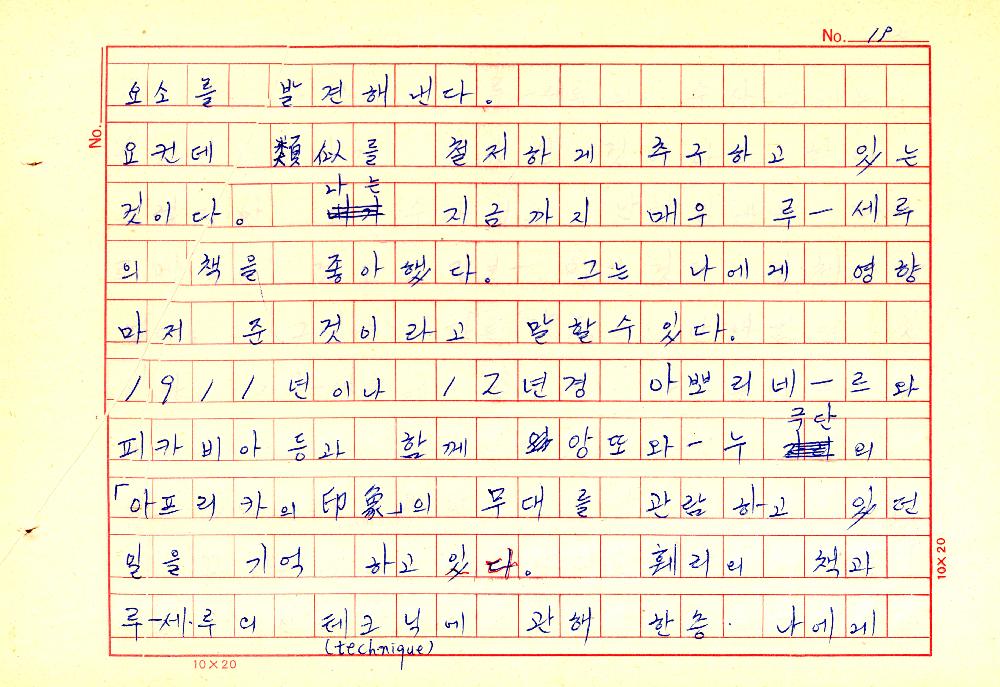 No. 19
요소를 발견해 낸다.
요컨데 類似를 철저하게 추구하고 있는
나는
것이다. 지금까지 매우 루—세루
의 책을 좋아했다. 그는 나에게 영향
마저 준 것이라고 말할수있다.
1911년이나 12년경 아뽀리네—르와
극단
피카비아등과 함께 앙또와—누 의
「아프리카의 印象」의 무대를 관람하고 있던
일을 기억 하고있다. 훼리의 책과
루—세·루의 테크닉에 관해 한층. 나에게
(technique)
No.
10×20
10×20